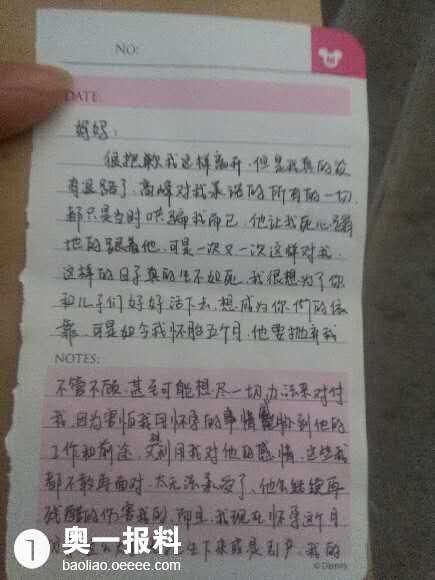 NO:
DATE:
妈妈:
很抱歉我这样离开,但是我真的没
有退路了,高峰对我承诺的所有的一切
都只是当时哄骗我而已,他让我死心塌
地的跟着他,可是一次又一次这样对我,
这样的日子真的生不如死,我很想为了你
和儿子们好好活下去,想成为你们的依
靠,可是如今我怀胎五个月,他要抛弃我
NOTES:
不管不顾,甚至可能想尽一切办法来对付
我,因为害怕我因怀孕的事情威胁到他的
工作和前途,又想利用我对他的感情,这些我
都不敢再面对,太无法承受了,他会继续再
残酷的伤害我的,而且,我现在怀孕这个月
生下来或是引产,我的
© Disney
1 奥一报料
baoliao.oeeee.com